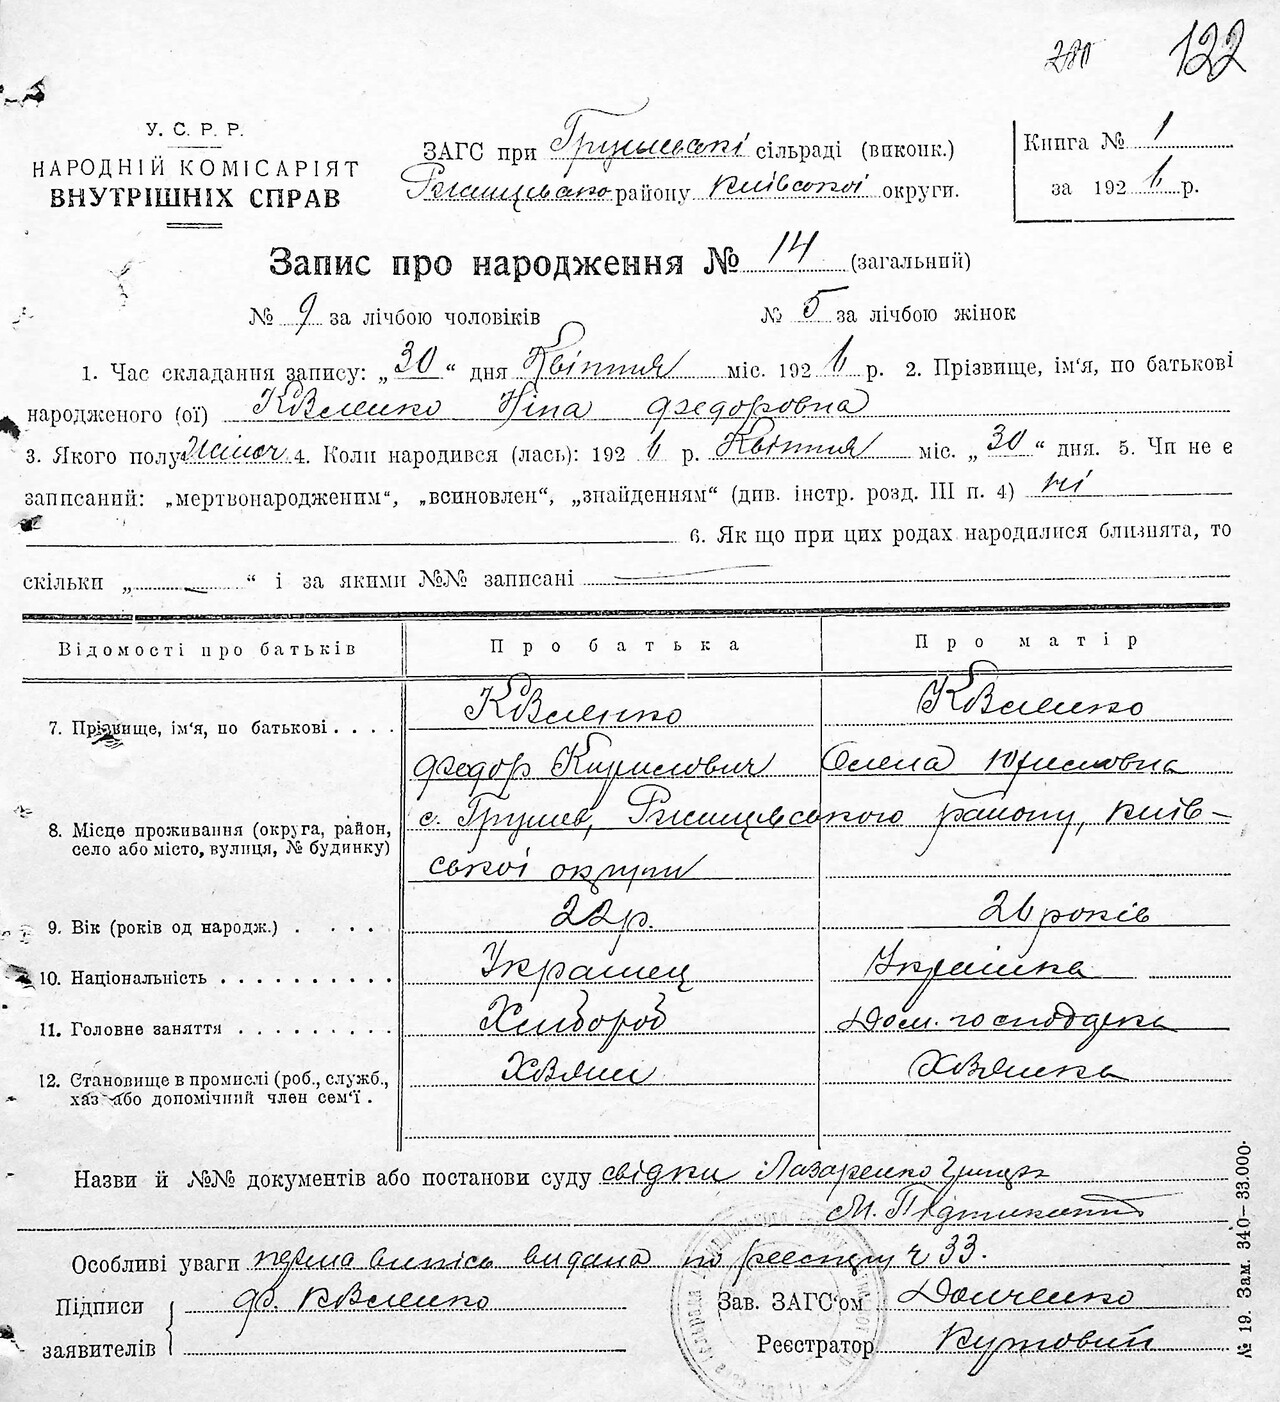 122
У. С. Р. Р.
НАРОДНІЙ КОМІСАРІЯТ
ВНУТРІШНІХ СПРАВ
ЗАГС при сільраді (виконк.)
району Київської округи.
Книга № 1
за 1926 р.
Запис про народження № 14 (загальний)
№ 9 за лічбою чоловіків № 5 за лічбою жінок
1. Час складання запису: „30“ дня Квітня міс. 1926 р. 2. Прізвище, ім'я, по батькові
народженого (ої) Коваленко Ніна Федоровна
3. Якого полу 4. Коли народився (лась): 1926 р. Квітня міс. „30“ дня. 5. Чи не є
записаний: „мертвонародженим“, „всиновлен“, „знайденням“ (див. інстр. розд. III п. 4) ні
6. Як що при цих родах народилися близнята, то
скільки „ “ і за якими №№ записані
Відомості про батьків Про батька Про матір
7. Прізвище, ім'я, по батькові . . . . Коваленко Коваленко
Федор Кирилович Олена
8. Місце проживання (округа, район, с. Грушев, Ржищевського району, Київ-
село або місто, вулиця, № будинку) ської округи
9. Вік (років од народж.) . . . . 22 р. 26 років
10. Національність . . . . . . . . . . Українец Українка
11. Головне заняття . . . . . . . . . Хлібороб Дом. господарка
12. Становище в промислі (роб., служб.,
хаз. або допомічний член сем'ї .
Назви й №№ документів або постанови суду свідки Лазаренко
М.
Особливі уваги перша випись видана по реєстру ч 33.
Підписи Ф. Коваленко Зав. ЗАГС'ом Донченко
заявителів Реєстратор Кутовий
№ 19. Зам. 340–33.000.